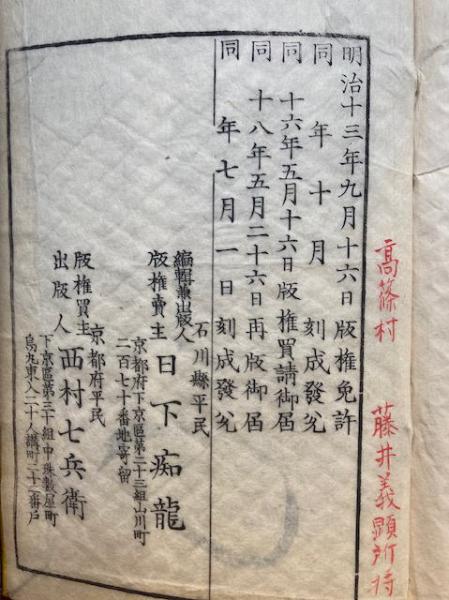 高篠村 藤井義顕所持
明治十三年九月十六日版権免許
同 年 十月 刻成發兌
同 十六年五月十六日版権買請御届
同 十八年五月二十六日再版御届
同 年 七月一日刻成發兌
石川縣平民
編輯兼出版人
版権賣主 日下痴龍
京都府下京區第二十三組山川町
二百七十番地寄留
京都府平民
版権買主
出版人 西村七兵衛
下京區第三十組中珠數屋町
烏丸東入二十人講町二十二番戸